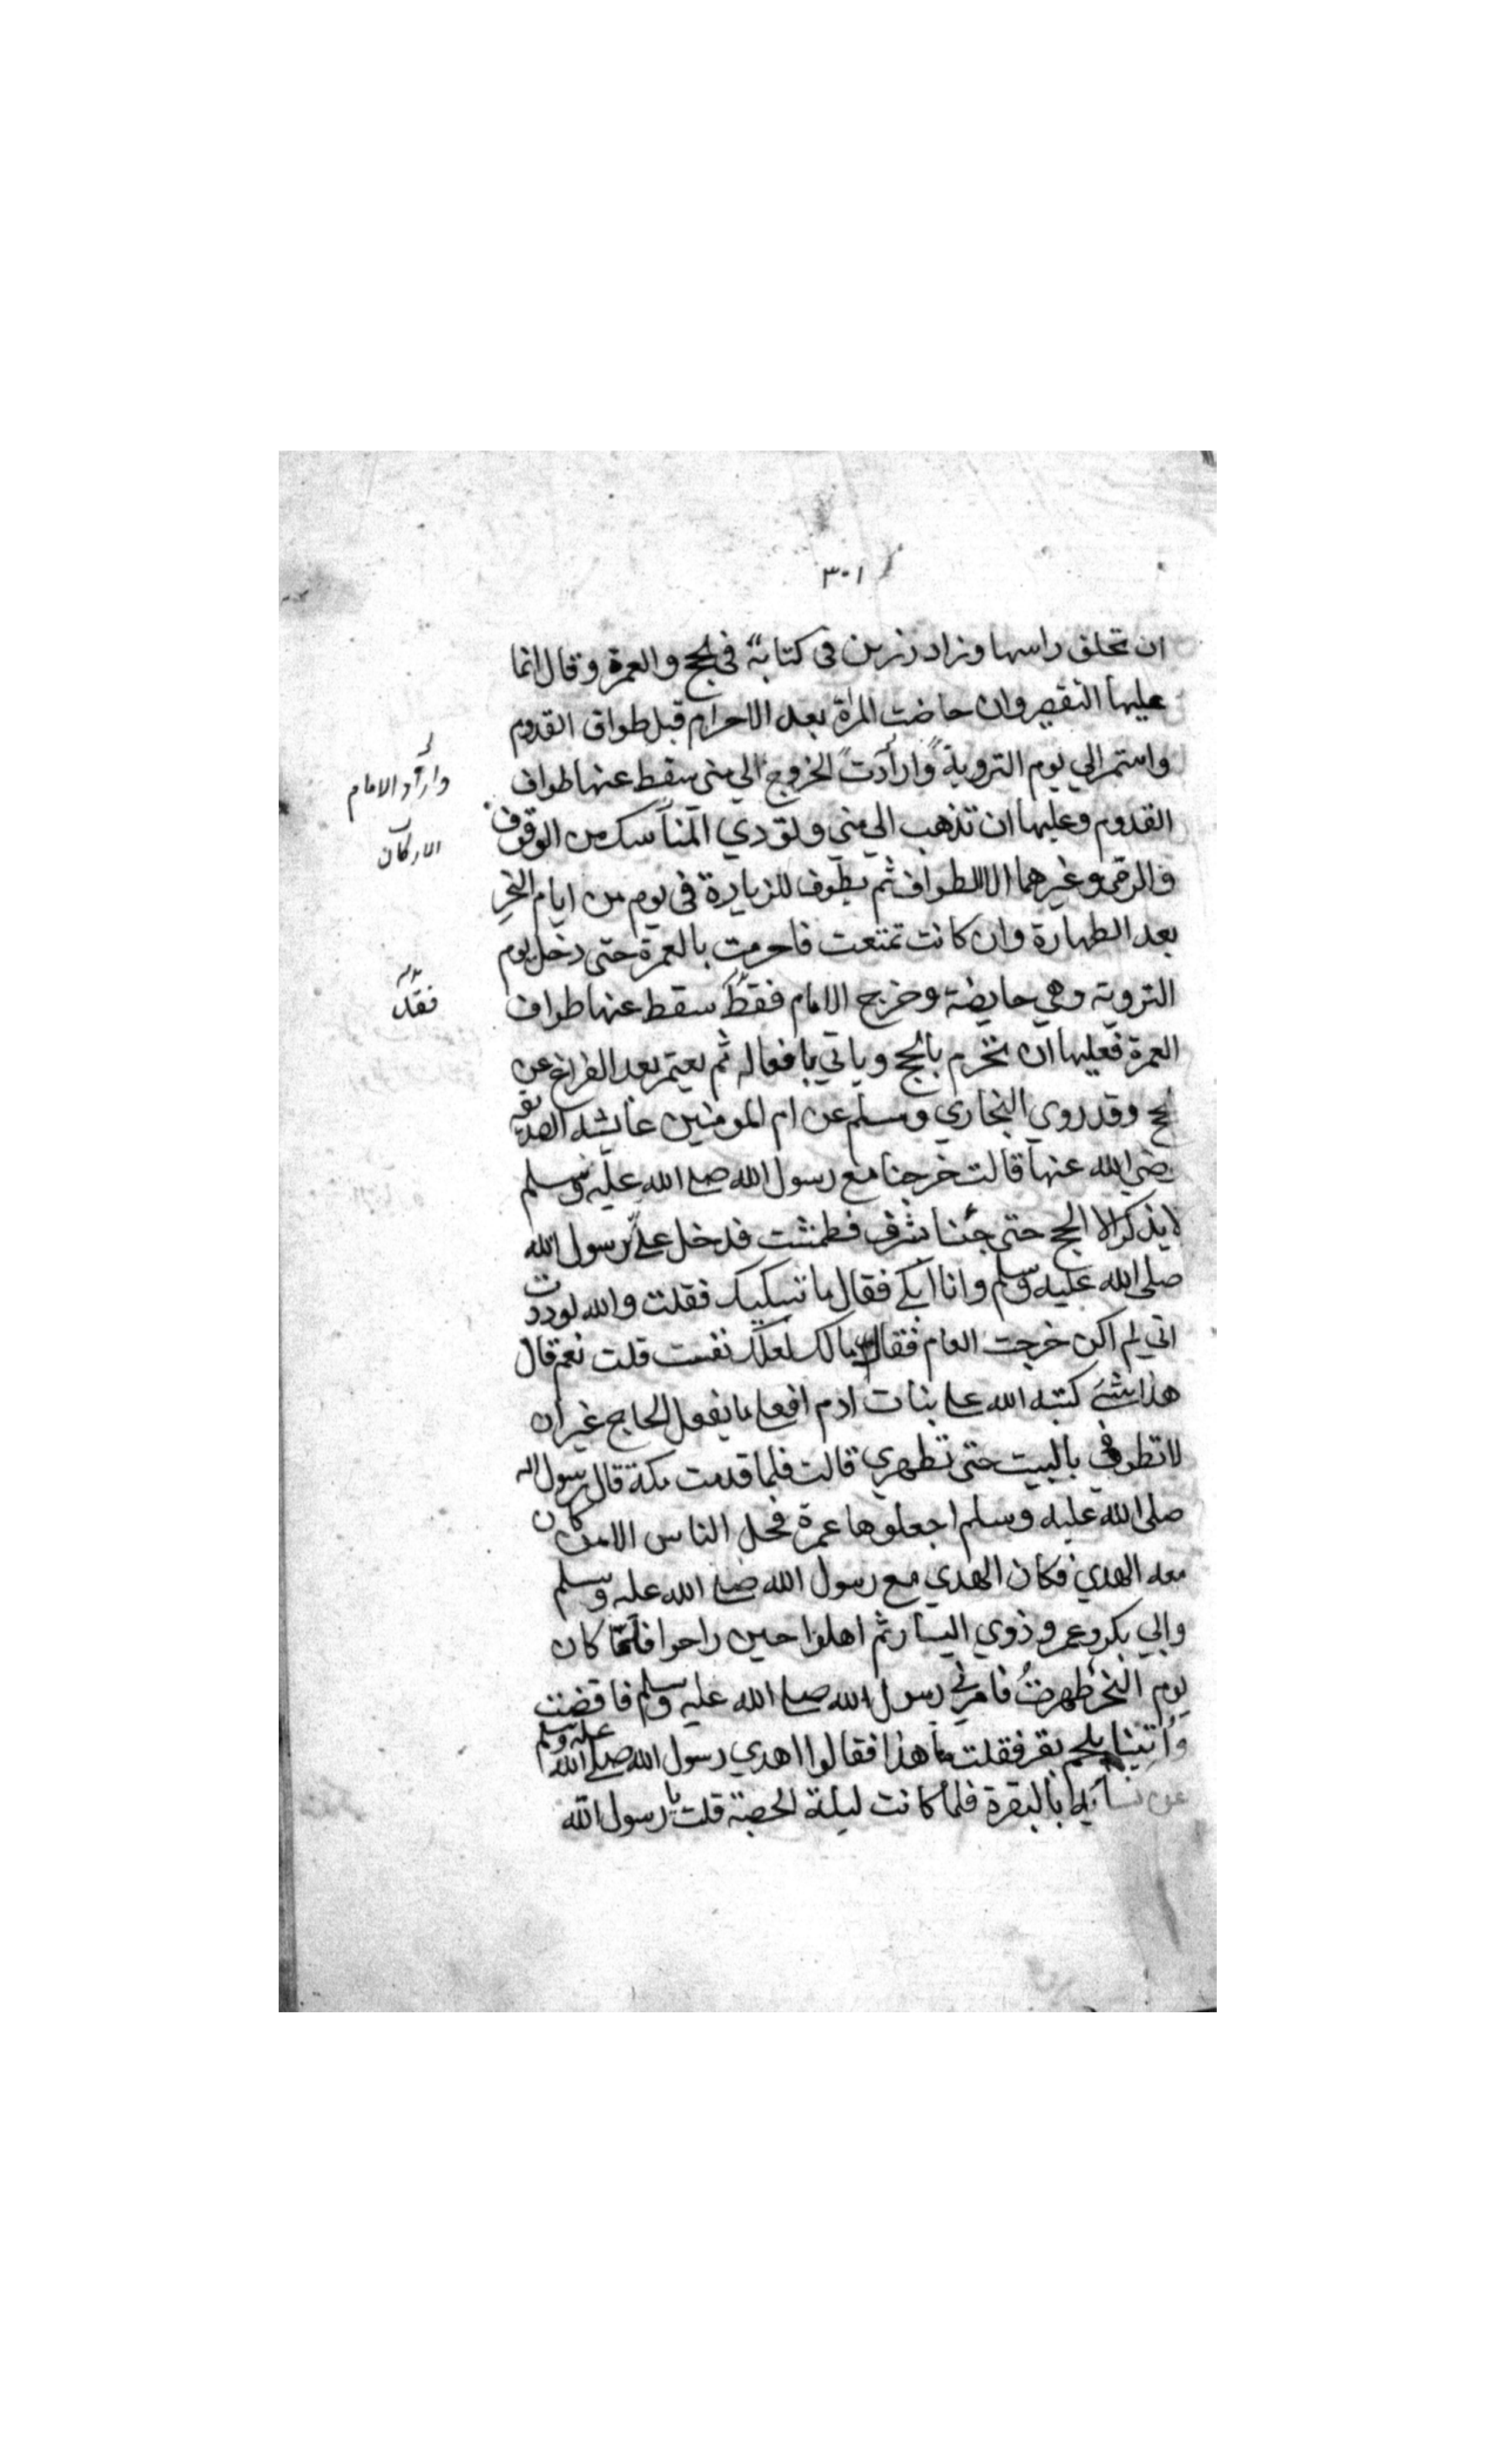 ٣٠١
ان تحلق راسها وزاد رزين في كتابة في الحج والعمرة وقال انما
عليها التقصير وان حاضت المرأة بعد الاحرام قبل طواف القدوم
واستمر الي يوم التروية وارادت الخروج الي منى سقط عنها طواف
وأراد الامام
القدوم وعليها ان تذهب الي منى وتودي المناسك من الوقوف
الاركان
والرمي وغيرهما الا الطواف ثم يطوف للزيارة في يوم من ايام النحر
بعد الطهارة وان كانت تمتعت فاحرمت بالعمرة حتى دخل يوم
التروية وهي حايضة وخرج الامام فقط سقط عنها طواف
فقد
العمرة فعليها ان تحرم بالحج وياتي بافعاله ثم يعتمر بعد الفراغ عن
لحج وقد روي البخاري ومسلم عن ام المومنين عائشه الصديقه
رضي الله عنها قالت خرجنا مع رسول الله صلى الله عليه وسلم
لا يذكر الا الحج حتى جئنا بشرف فطمثت فدخل علي رسول الله
صلى الله عليه وسلم وانا ابكي فقال ما تبكيك فقلت والله لوددت
اني لم اكن خرجت العام فقال مالك لعلك نفست قلت نعم قال
هذا شئ كتبه الله على بنات ادم افعلي ما يفعل الحاج غير ان
لا تطوفي بالبيت حتى تطهري قالت فلما قدمت مكة قال رسول الله
صلى الله عليه وسلم اجعلوها عمرة فحل الناس الا من كان
معه الهدي فكان الهدي مع رسول الله صلى الله عليه وسلم
وابي بكر وعمر وذوي اليسار ثم اهلوا حين راحوا فلما كان
يوم النحر طهرت فامرني رسول الله صلى الله عليه وسلم فاقضت
وأتينا بلحم بقر فقلت ما هذا فقالوا اهدي رسول الله صلى الله عليه وسلم
عن نسائه بالبقرة فلما كانت ليلة الحصبة قلت يا رسول الله